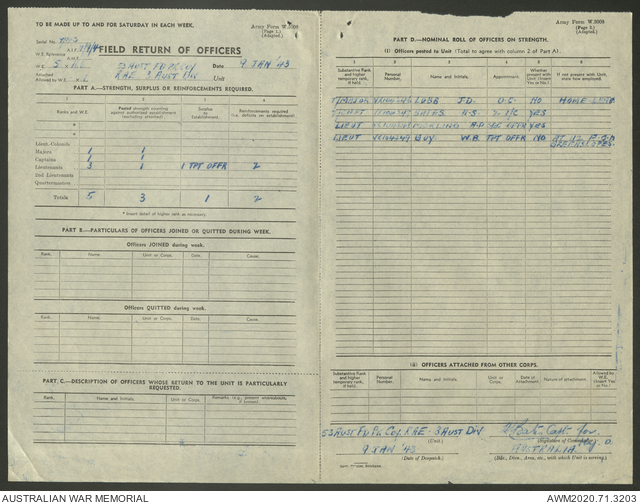 TO BE MADE UP TO AND FOR SATURDAY IN EACH WEEK.
Army Form W.3009
(Page 1.)
(Adapted.)
Serial No.
W.E. Reference
FIELD RETURN OF OFFICERS
Attached
Allowed by W.E.
RAE 3 AUST DIV
Unit
Date 9 JAN 43
PART A.—STRENGTH, SURPLUS OR REINFORCEMENTS REQUIRED.
1 2 3 4
Ranks and W.E.
Posted strength counting against authorized establishment (excluding attached).
Surplus to Establishment.
Reinforcements required (i.e. deficits on establishment).
Lieut.-Colonels
Majors 1 1
Captains 1 1
Lieutenants 3 1 1 TPT OFFR 2
2nd Lieutenants
Quartermasters
Totals 5 3 1 2
* Insert detail of higher rank as necessary.
PART B.—PARTICULARS OF OFFICERS JOINED OR QUITTED DURING WEEK.
Officers JOINED during week.
Rank. Name. Unit or Corps. Date. Cause.
Officers QUITTED during week.
Rank. Name. Unit or Corps. Date. Cause.
PART C.—DESCRIPTION OF OFFICERS WHOSE RETURN TO THE UNIT IS PARTICULARLY
REQUESTED.
Rank. Name and Initials. Unit or Corps.
Army Form W.3009
(Page 2.)
(Adapted.)
PART D.—NOMINAL ROLL OF OFFICERS ON STRENGTH.
(i) Officers posted to Unit (Total to agree with column 2 of Part A).
1 2 3 4 5 6
Substantive Rank and higher temporary rank, if held.
Personal Number.
Name and Initials.
Appointment.
Whether present with Unit (Insert Yes or No).
If not present with Unit, state how employed.
J.D. O.C. NO
2 I/C YES
LIEUT YES
LIEUT GUY W.B. TPT OFFR NO
(ii) OFFICERS ATTACHED FROM OTHER CORPS.
Substantive Rank and higher temporary rank, if held.
Personal Number.
Name and Initials.
Unit or Corps.
Date of Attachment.
Nature of attachment.
Allowed by W.E. (Insert Yes or No)
53 AUST FD PK COY. RAE - 3 AUST DIV
(Unit.)
9 JAN '43
(Date of Despatch.)
Capt for
AUSTRALIA.
(Bde., Divn., Area, etc., with which Unit is serving.)
AUSTRALIAN WAR MEMORIAL
AWM2020.71.3203